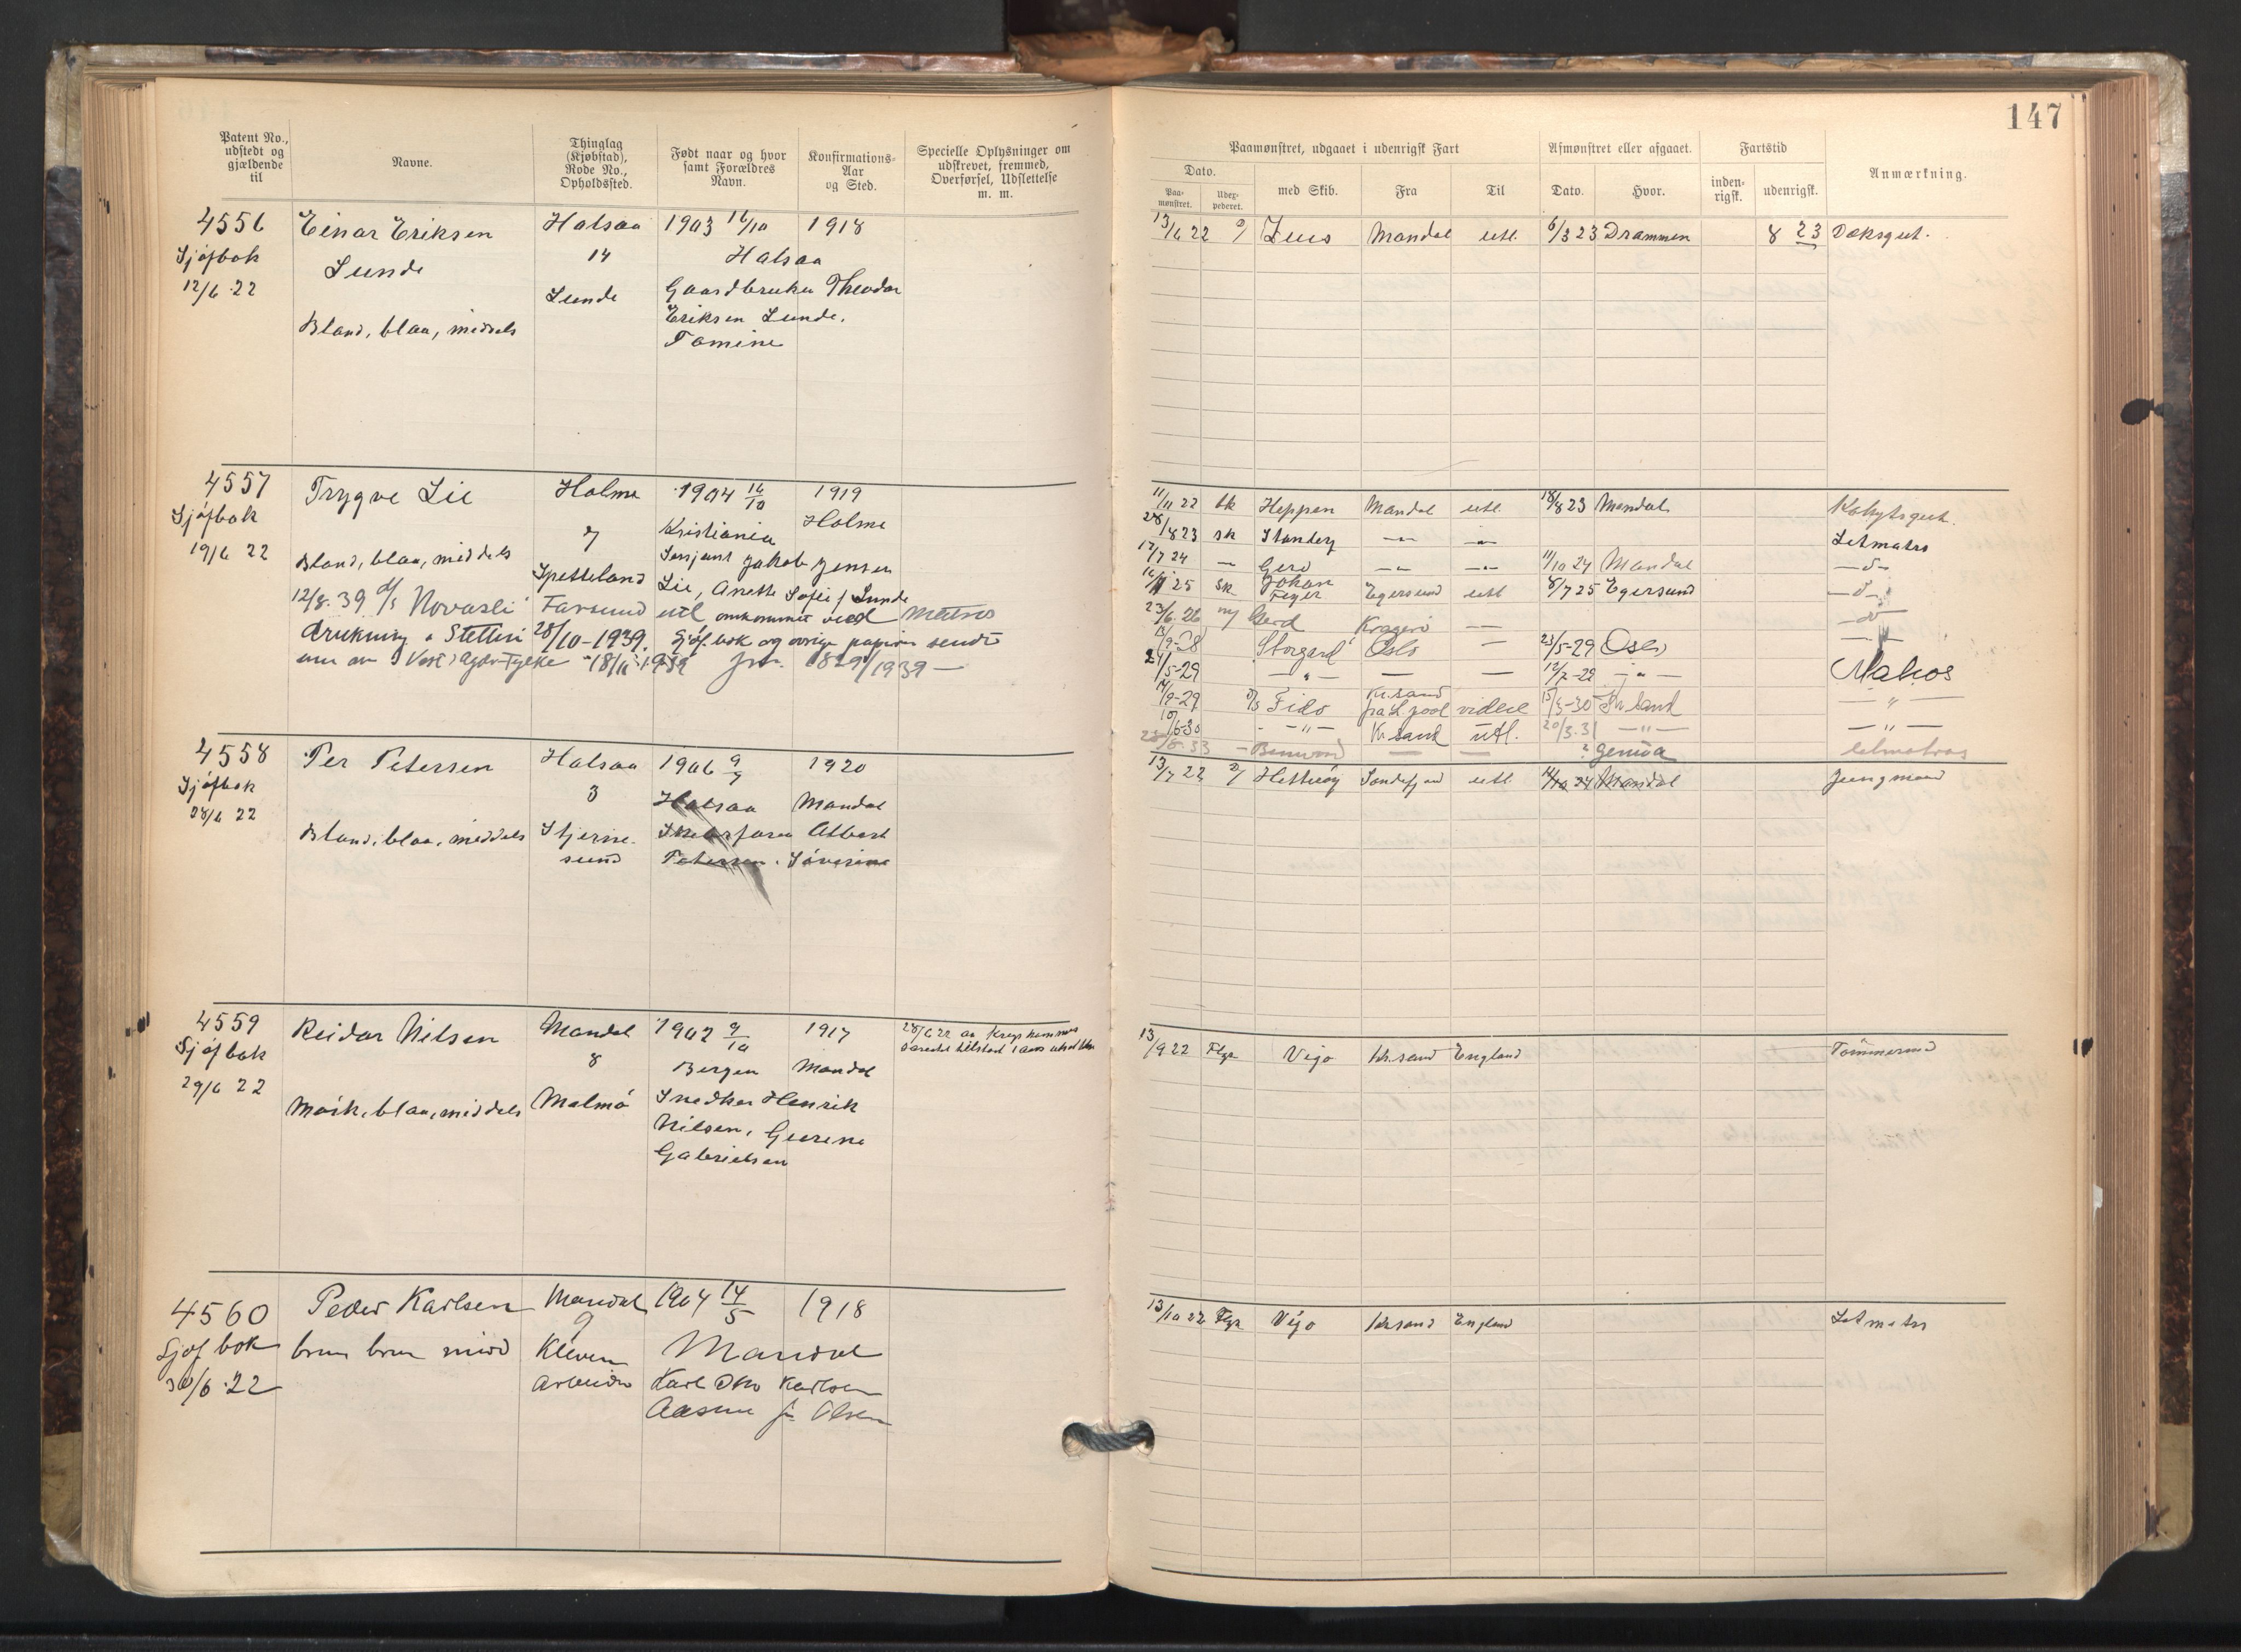 147
Patent No., udstedt og gjældende til
Navne.
Thinglag (Kjøbstad), Rode No., Opholdssted.
Født naar og hvor samt Forældres Navn.
Konfirmations-Aar og Sted.
Specielle Oplysninger om udskrevet, fremmed, Overførsel, Udslettelse m. m.
Paamønstret, udgaaet i udenrigsk Fart
Afmønstret eller afgaaet.
Fartstid
Anmærkning.
Dato.
Paa-mønstret.
med Skib.
Fra
Til
Dato.
Hvor.
inden-rigsk.
udenrigsk.
4556 Einar Eriksen Halsaa 1903 16/10 1918
Sjøfbok Lunde 14 Halsaa
12/6 22 Lunde Gaardbruker Theodor
Eriksen Lunde.
Bland, blaa, middels Tomine
13/6 22 Zeus Mandal utl. 6/3 23 Drammen 8 23 Dæksgut.
4557 Trygve Lie Holme 1904 16/10 1919
Sjøfbok 7 Kristiania Holme
19/6 22 Bland, blaa, middels Spetteland Sersjant Jakob Jensen
Lie, Anette Sofie f Lunde
12/8. 39 d/s Novasli Farsund utl omkommet ved Matros
drukning i Stettin 28/10-1939. Sjøf.bok og øvrige papirer sendt
Vest Agder Fylke 18/11 1939 jnr. 1829/1939 —
11/11 22 sk Heppen Mandal utl. 18/8 23 Mandal Kahytsgut.
28/8 23 sk Letmatros
17/7 24 — Gerd — — 11/10 24 Mandal —d—
25 sk Johan Feyer Egersund utl 8/7 25 Egersund —d—
23/6. 26 Gerd Kragerø — —d—
Storgard Oslo — 23/5-29 Oslo
24/5-29 — " — — — 12/7-29 — " — Matros
14/9-29 D/S Fido Kr.sand fra L.pool videre 15/3-30 Kr.sand — " —
— " — Kr.sand utl. 20/3.31 — " — — " —
— — ? Genua letmatros
4558 Per Petersen Halsaa 1906 9/7 1920
Sjøfbok 3 Halsaa Mandal
28/6 22 Bland, blaa, middels Stjernesund Albert
Petersen. Søverine
13/7 22 Sandefjord utl. 24 Mandal Jungmand
4559 Reidar Nilsen Mandal 1902 9/10 1917
Sjøfbok 8 Bergen Mandal
29/6 22 Mørk, blaa, middels Malmø Snedker Henrik
Nilsen, Geerine
Gabrielsen
28/6 22 av
13/9 22 Vigo Kr.sand England Tømmermd
4560 Peder Karlsen Mandal 1904 14/5 1918
Sjøfbok brun brun midd 9 Mandal
30/6 22 Kleven Karl Otto Karlsen
Arbeider Aasine f. Olsen
13/10 22 Vigo Kr.sand England Letmatr